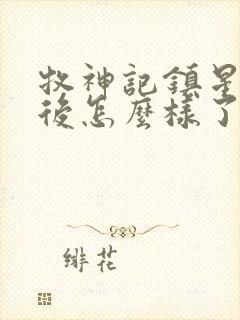 牧神記鎮星
後怎麼樣了
緋花